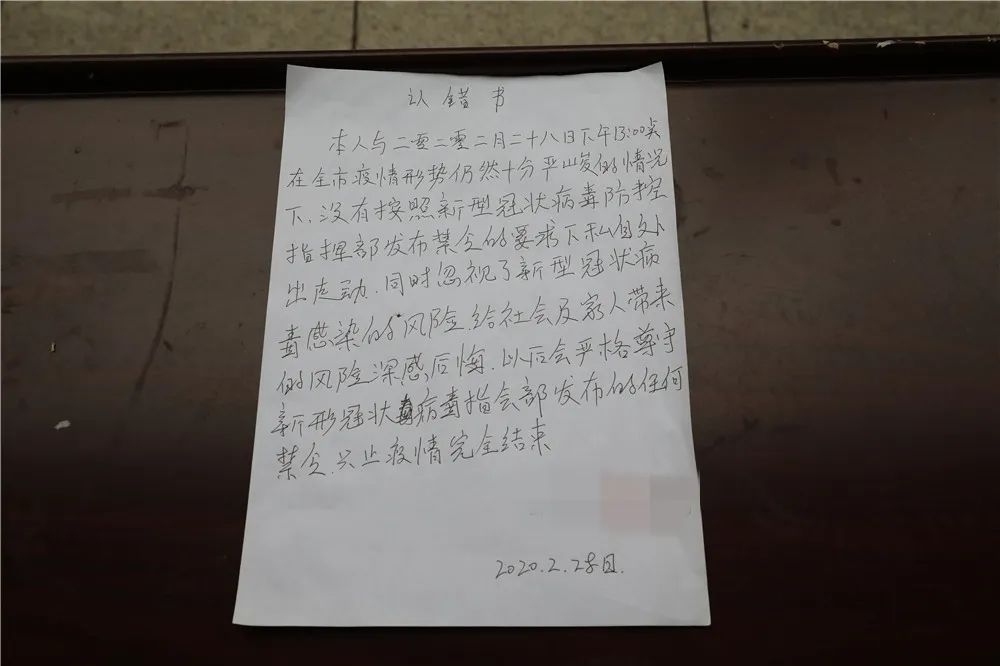 认错书
本人与二零二零二月二十八日下午13:00矣
在全市疫情形势仍然十分严山发的情况
下、没有按照新型冠状病毒防控
指挥部发布禁令的要求下私自外
出走动.同时忽视了新型冠状病
毒感染的风险.给社会及家人带来
的风险深感后悔.以后会严格尊守
新形冠状病毒指会部发布的任何
禁令.只止疫情完全结束
2020.2.28日.